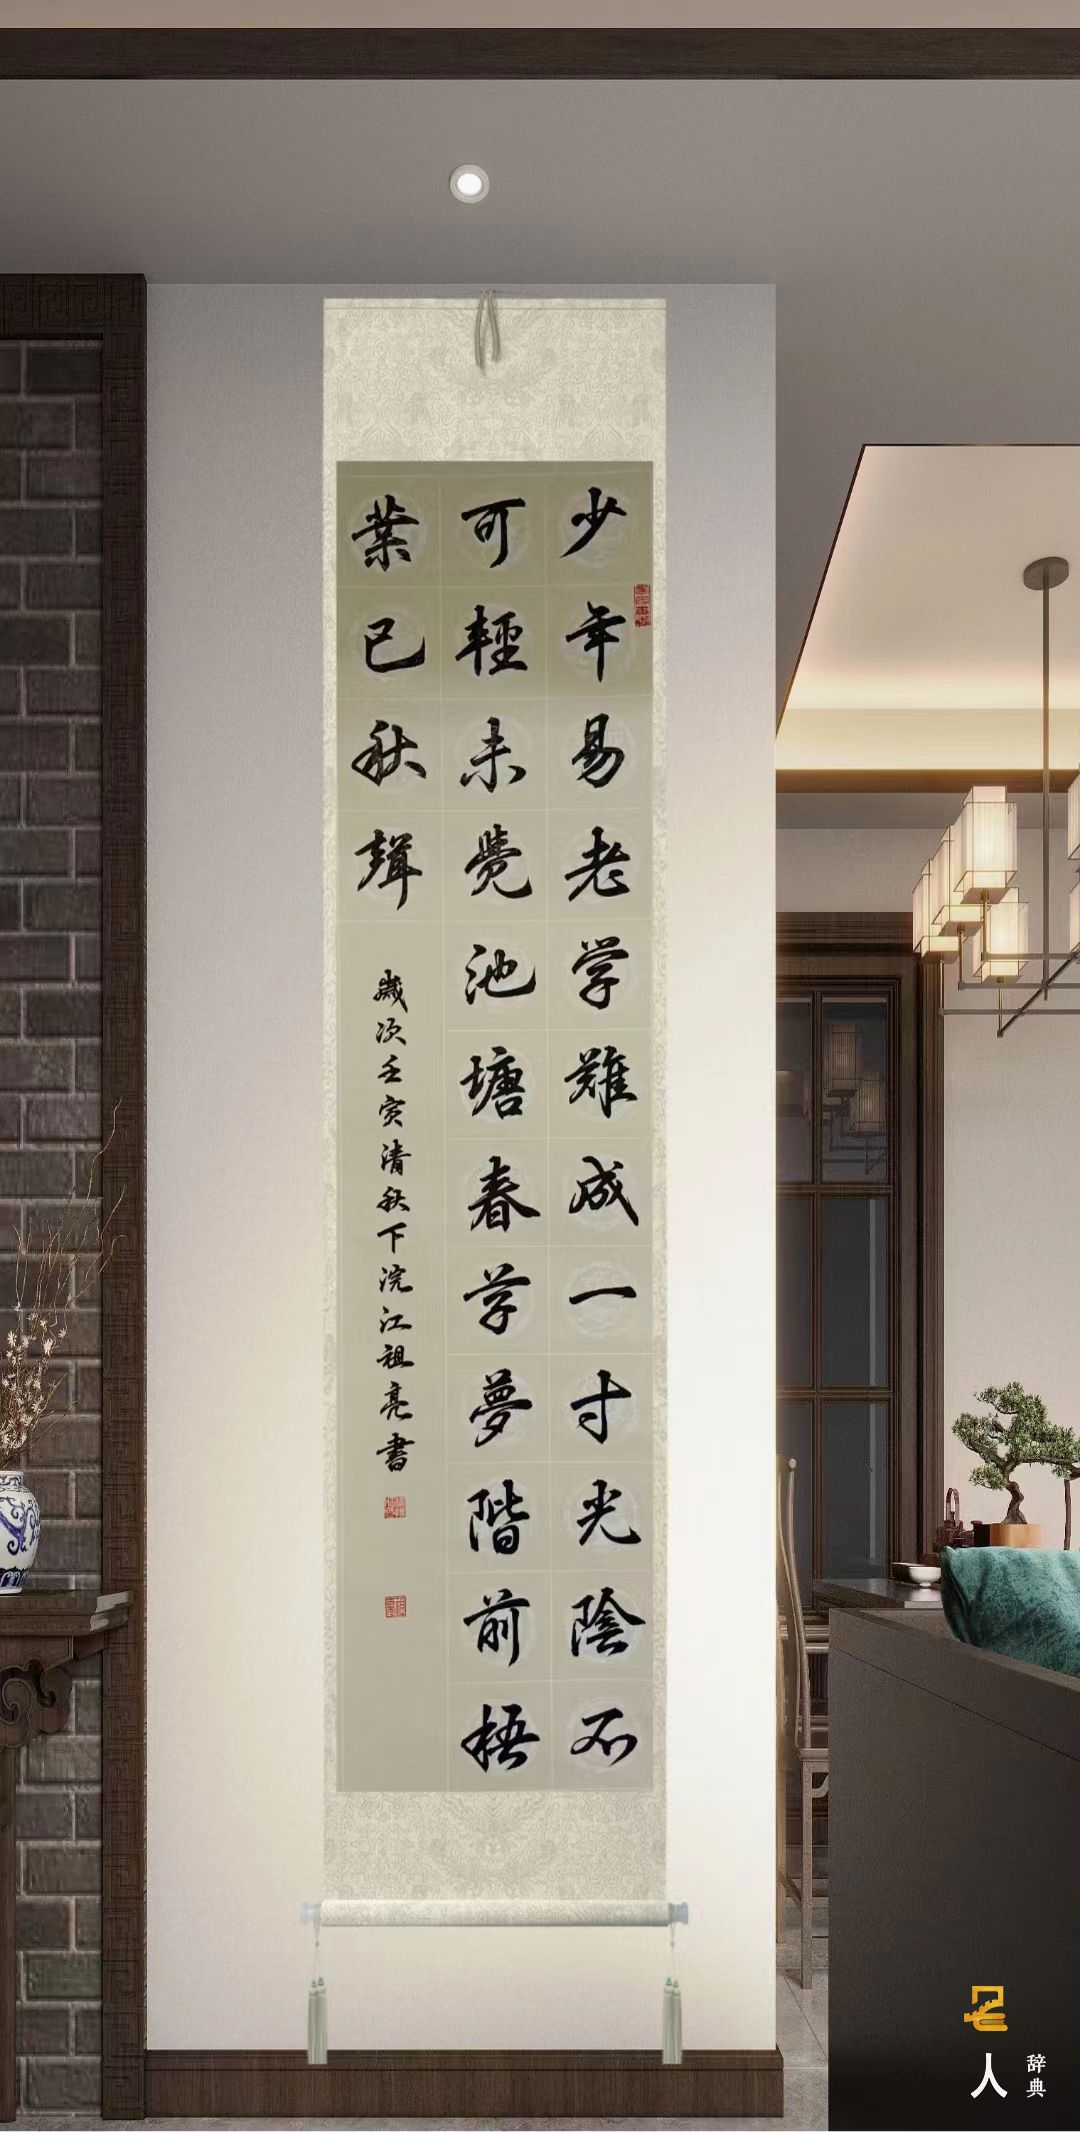 少年易老学難成一寸光陰不
可輕未覺池塘春草夢階前梧
葉已秋聲
歲次壬寅清秋下浣江祖亮書
人
辞典